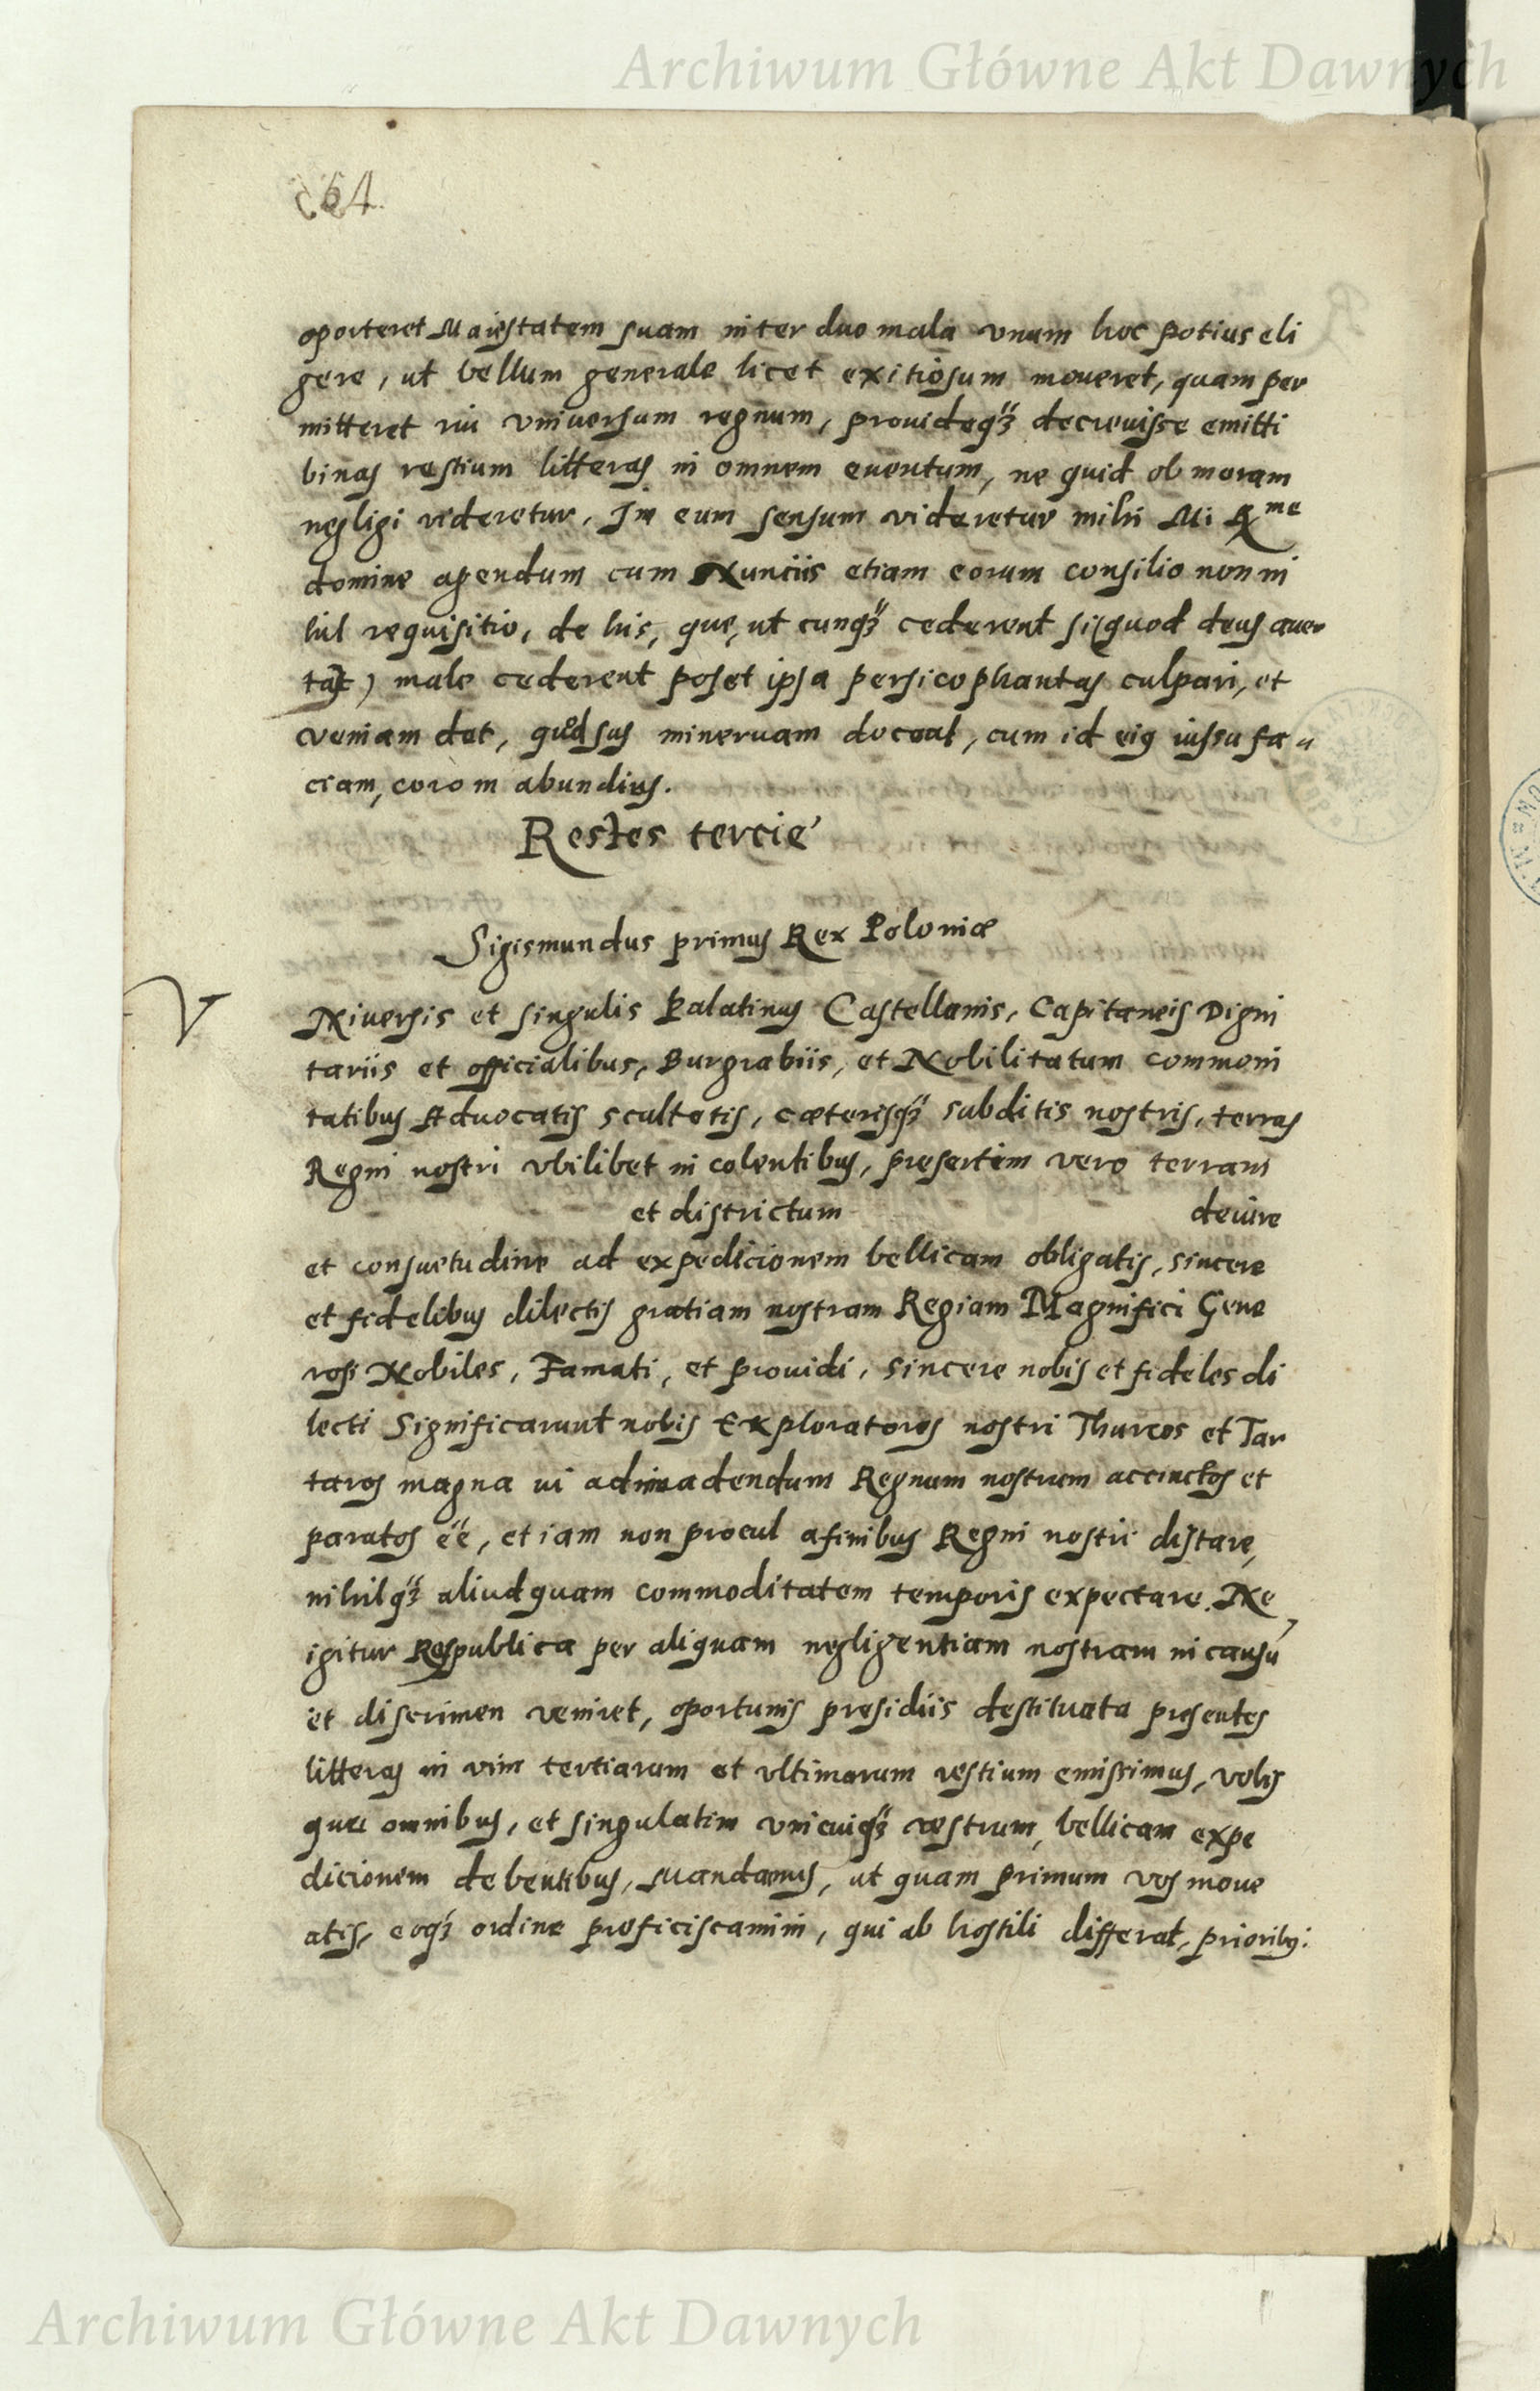 Archiwum Główne Akt Dawnych
oporteret Maiestatem suam inter duo mala vnum hoc potius eli
gere, ut bellum generale licet exitiosum moueret, quam per
mitteret rui vniuersum regnum, prouideq3 decreuisse emitti
binas restium litteras in omnem euentum, ne quid ob moram
negligi videretur. In eum sensum videretur mihi Mi Rme
domine agendum cum Nunciis etiam eorum consilio non ni
hil requisitio, de his, que, ut cunq3 cederent si (quod deus auer
tat) male cederent poset ipsa persicophantas culpari, et
veniam det, quod sus mineruam doceat, cum id eius iussu fa
ciam, corom abundius.
Restes tercie
Sigismundus primus Rex Poloniæ
V
Niuersis et singulis Palatinus Castellanis, Capitaneis Digni
tariis et officialibus, Burgrabiis, et Nobilitatum commoni
tatibus Aduocatis scultetis, cæterisq3 subditis nostris, terras
Regni nostri vbilibet in colentibus, presertim vero terram
et districtum deiure
et consuetudine ad expedicionem bellicam obligatis, sincere
et fidelibus dilectis gratiam nostram Regiam Magnifici Gene
rosi Nobiles, Famati, et prouidi, sincere nobis et fideles di
lecti Significarunt nobis Exploratores nostri Thurcos et Tar
taros magna ui ad inuadendum Regnum nostrum accinctos et
paratos ee, et iam non procul afinibus Regni nostri distare,
nihilq3 aliud quam commoditatem temporis expectare. Ne
igitur Respublica per aliquam negligentiam nostram in causu
et discrimen veniret, oportunis presidiis destituata presentes
litteras in vim tertiarum et vltimarum restium emissimus, vobis
que omnibus, et singulatim vnicuiq3 vestrum, bellicam expe
dicionem debentibus, Mandamus, ut quam primum vos moue
atis, eoq3 ordine proficiscamini, qui ab hostili differat, prioribus
Archiwum Główne Akt Dawnych